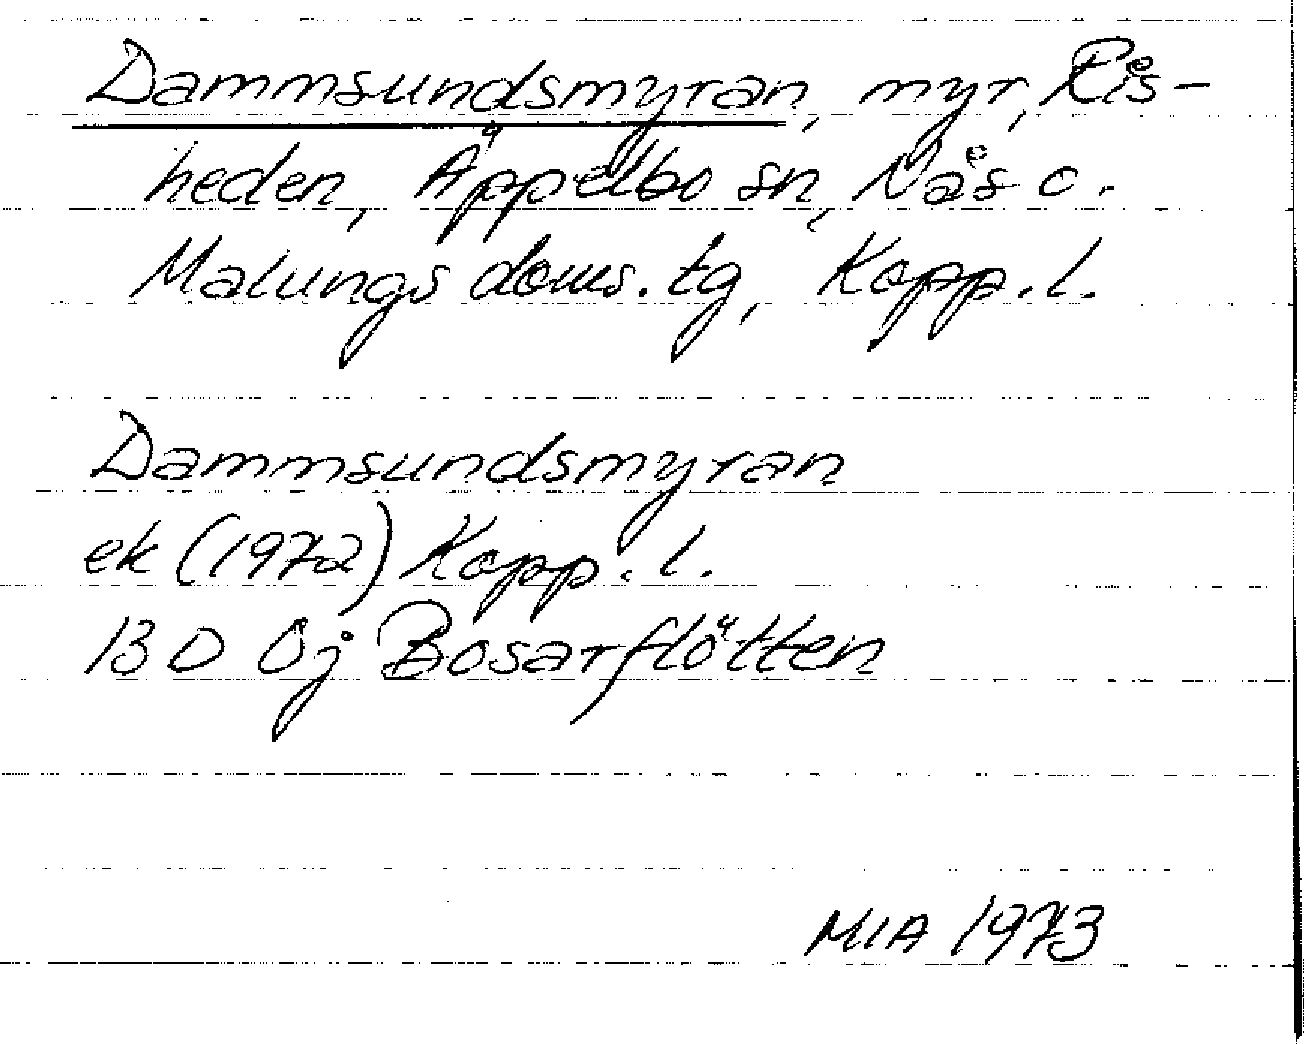 Dammsundsmyran, myr, Ris-
heden, Äppelbo sn, Nås o.
Malungs doms. tg, Kopp. l.
Dammsundsmyran
ek (1972) Kopp. l.
13 D 0j Bosarflötten
MIA 1973